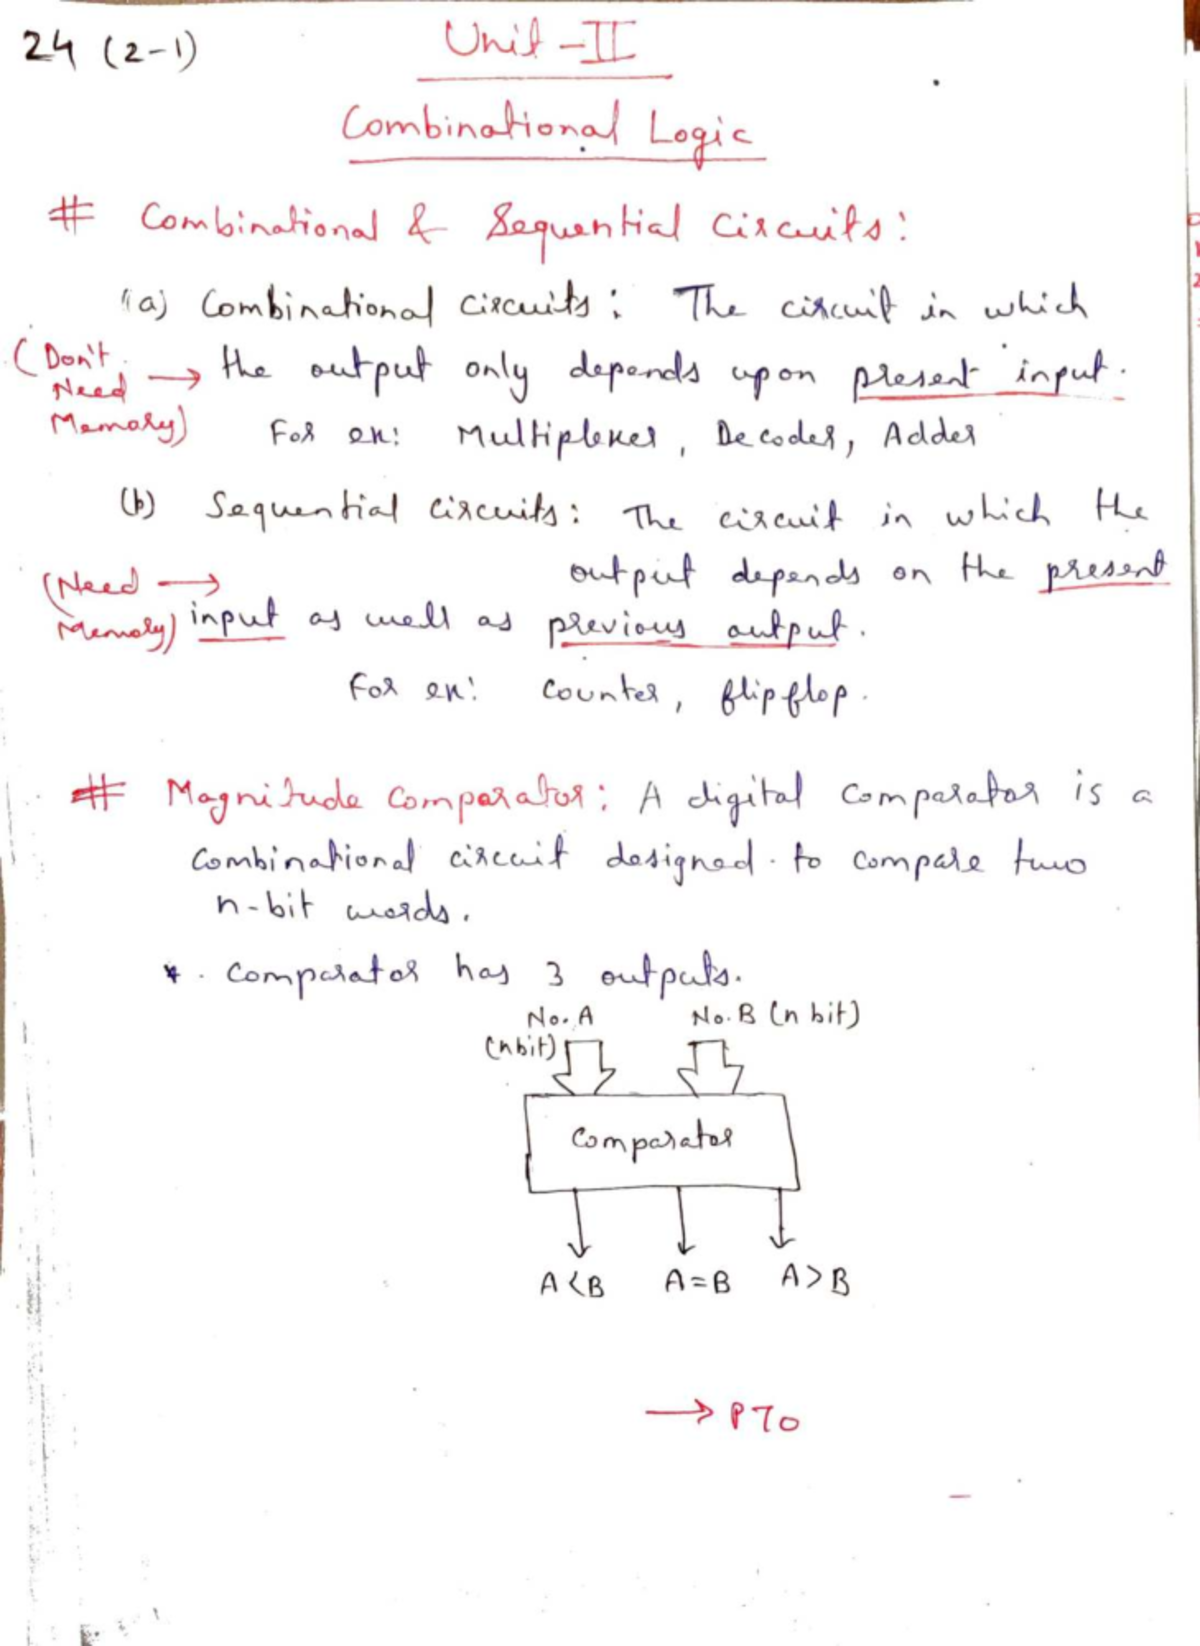 24 (2-1)
Unit-II
Combinational Logic
# Combinational & Sequential Circuits:
(a) Combinational circuits: The circuit in which
(Don't Need Memory) → the output only depends upon present input.
For ex: Multiplexer, Decoder, Adder
(b) Sequential circuits: The circuit in which the
output depends on the present
(Need Memory) → input as well as previous output.
For ex: Counter, flipflop.
# Magnitude Comparator: A digital comparator is a
Combinational circuit designed to compare two
n-bit words.
* Comparator has 3 outputs.
No. A (n bit)
No. B (n bit)
Comparator
A<B A=B A>B
→ PTO